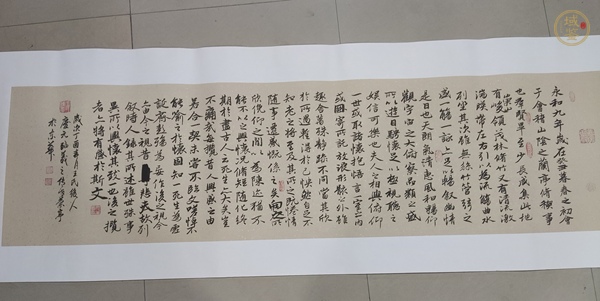 永和九年歲在癸丑暮春之初會
于會稽山陰之蘭亭脩稧事
也群賢畢至少長咸集此地
有崇山峻領茂林脩竹又有清流激
湍暎帶左右引以為流觴曲水
列坐其次雖無絲竹管弦之
盛一觴一詠亦足以暢敘幽情
是日也天朗氣清惠風和暢仰
觀宇宙之大俯察品類之盛
所以遊目騁懷足以極視聽之
娛信可樂也夫人之相與俯仰
一世或取諸懷抱悟言一室之內
或因寄所託放浪形骸之外雖
趣舍萬殊靜躁不同當其欣
於所遇暫得於己怏然自足不
知老之將至及其所之既惓情
隨事遷感慨係之矣向之所
欣俛仰之間以為陳迹猶不
能不以之興懷況脩短隨化終
期於盡古人云死生亦大矣豈
不痛哉每攬昔人興感之由
若合一契未嘗不臨文嗟悼不
能喻之於懷固知一死生為虛
誕齊彭殤為妄作後之視今
亦由今之視昔悲夫故列
敘時人錄其所述雖世殊事
異所以興懷其致一也後之攬
者亦將有感於斯文
歲次丁酉 王氏後人
臨羲之 蘭亭
於京華